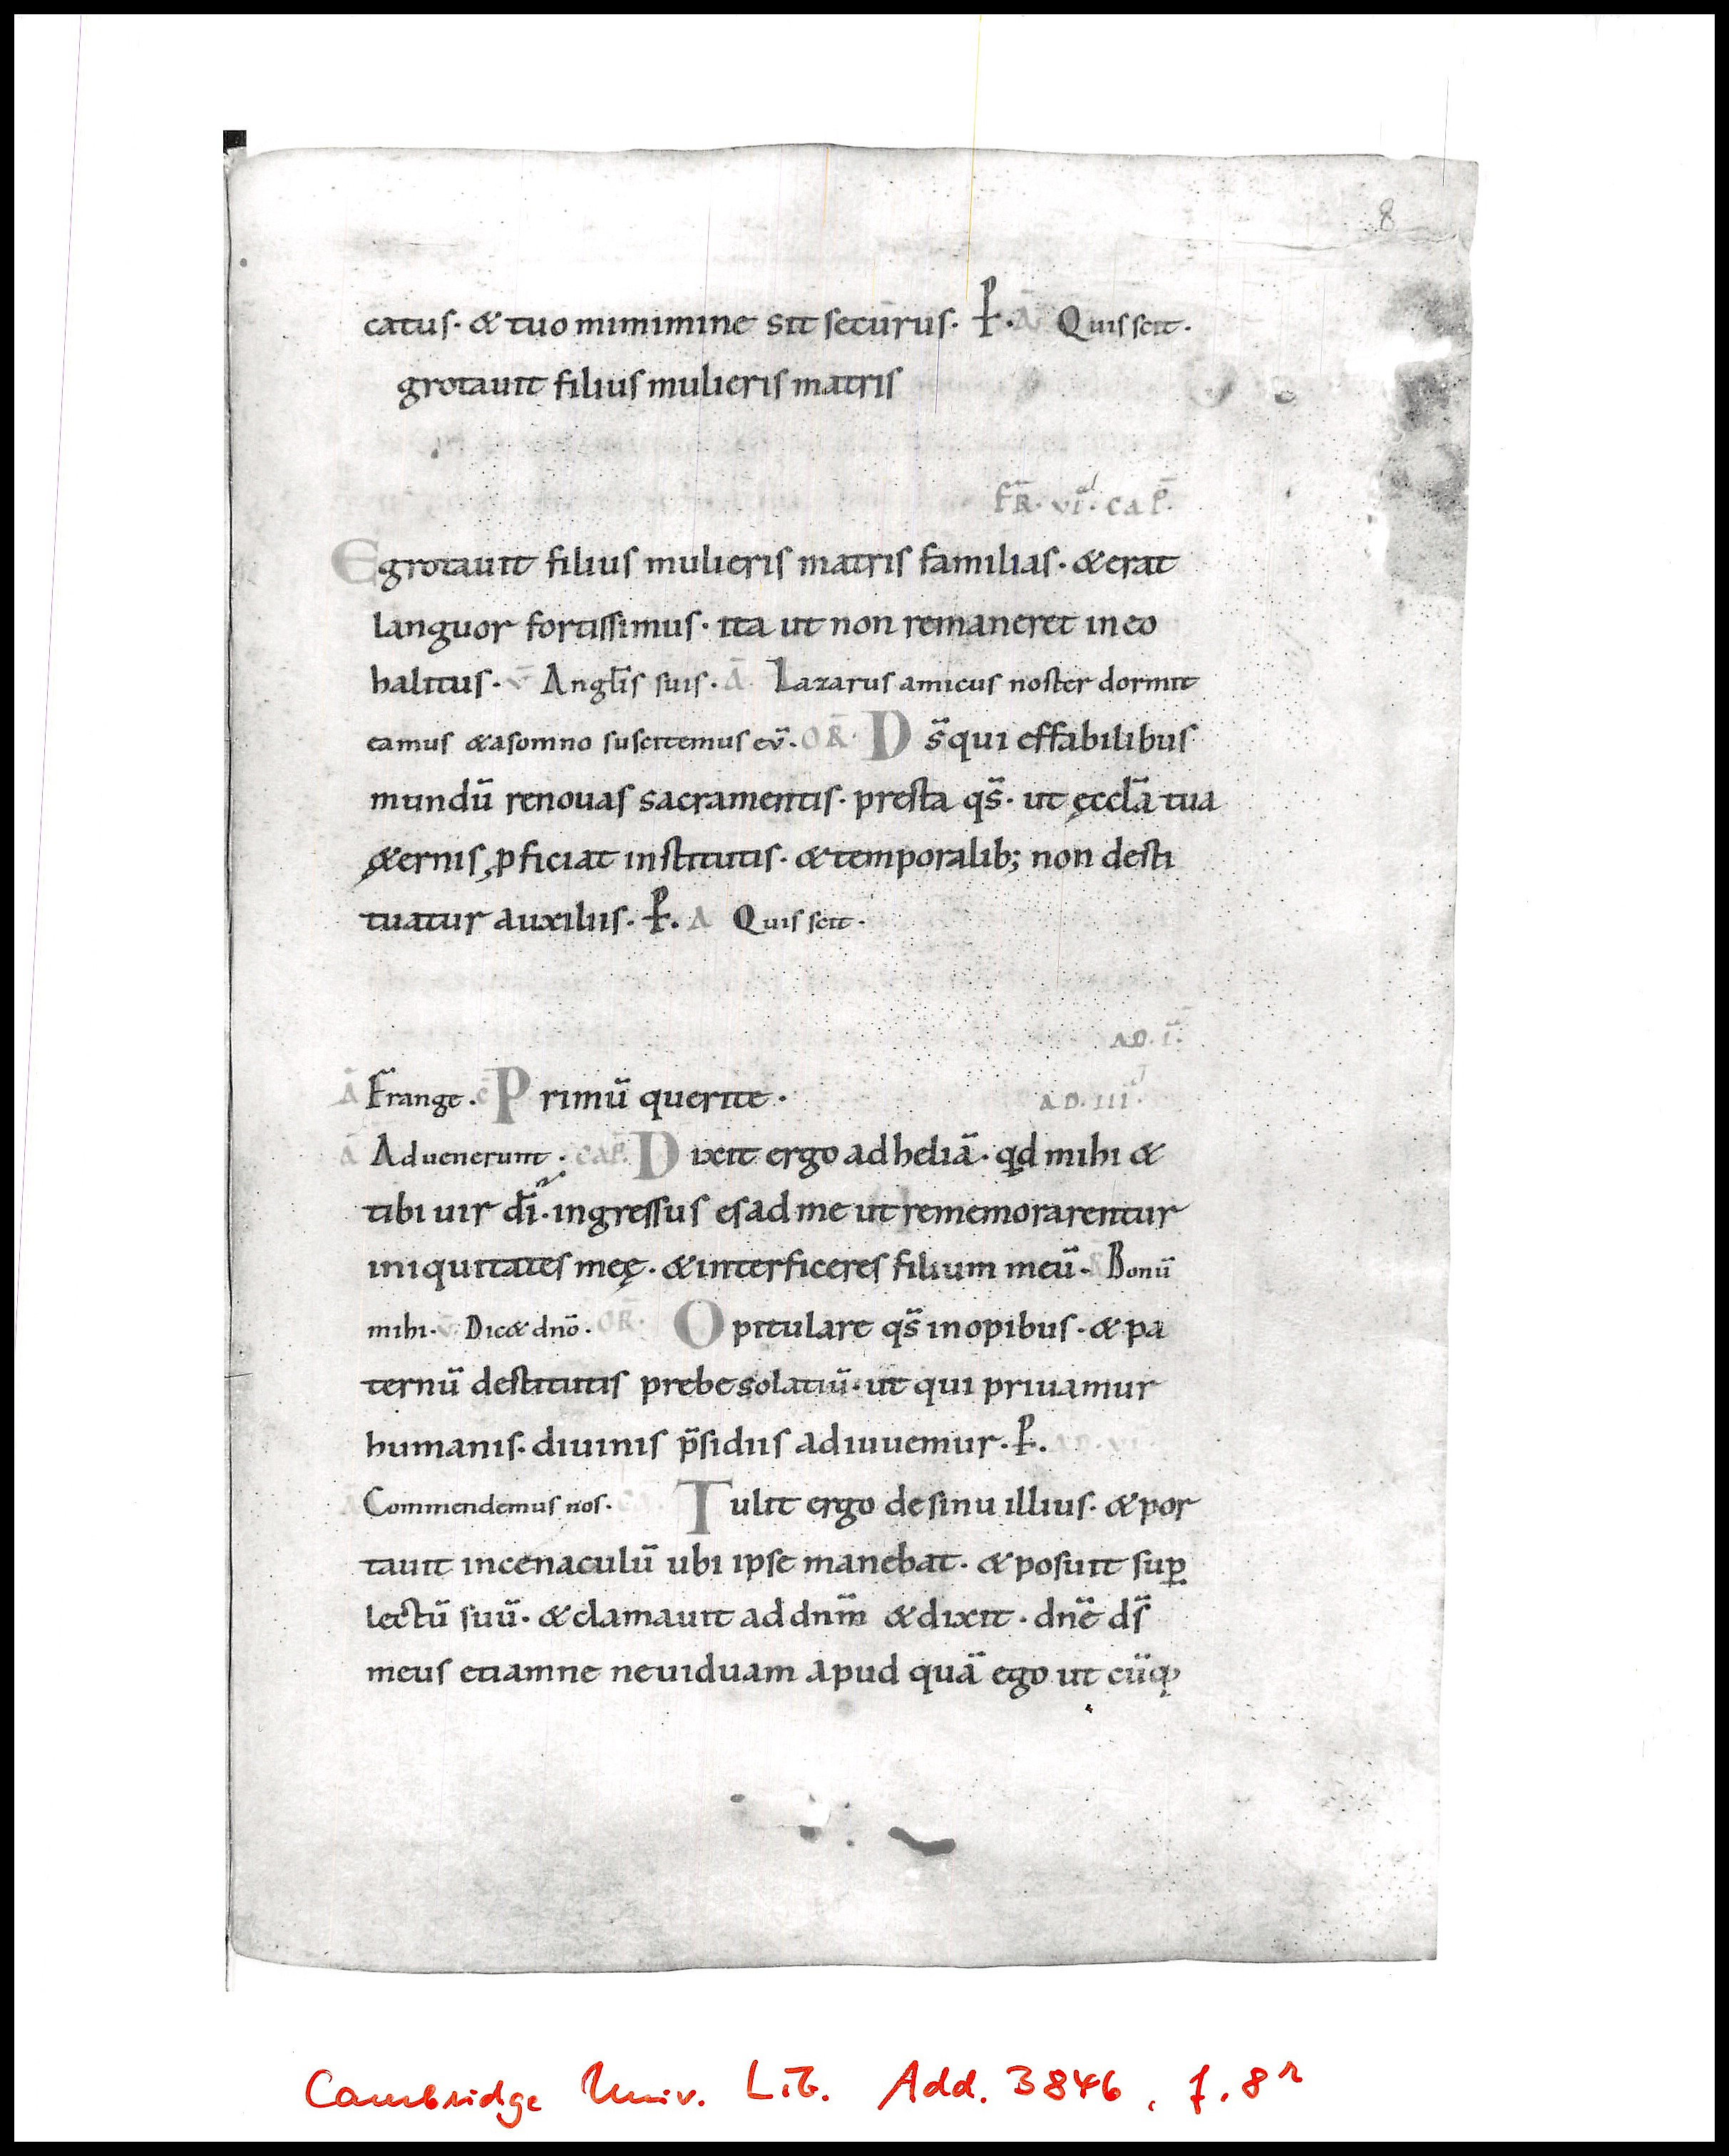 8
catus· & tuo mimimine sit secūrus· P. Ā Quis scit·
grotauit filius mulieris matris
FR̄· VIᵃ· CAP̄·
Egrotauit filius mulieris matris familias· & erat
languor fortissimus· ita ut non remaneret in eo
halitus· v̄ Angl̄is suis· Ā Lazarus amicus noster dormit
eamus & a somno suscitemus eū· OR̄· Ds̄ qui effabilibus
mundū renouas sacramentis· presta qs̄· ut ęccl̄a tua
&ernis ꝓficiat institutis· & temporalib; non desti
tuatur auxiliis· P. A Quis scit·
AD· Ī·
Ā Frange· c̄ Primū querite·
AD· III·
Ā Aduenerunt· CAP̄· Dixit ergo ad heliā· qd mihi &
tibi uir dī· ingressus es ad me ut rememorarentur
iniquitates meę· & interficeres filium meū· R̄ Bonū
mihi· v̄ Dic& dnō· OR̄· Opitulare qs̄ inopibus· & pa
ternū destitutis prebe solatiū· ut qui priuamur
humanis· diuinis p̄sidiis adiuuemur· P. AD· VI
A Commendemus nos· CA· Tulit ergo de sinu illius· & por
tauit in cenaculū ubi ipse manebat· & posuit suꝑ
lectū suū· & clamauit ad dnm̄ & dixit· dnē ds̄
meus etiamne ne uiduam apud quā ego ut cūq;
Cambridge Univ. Lib. Add. 3846, f. 8r